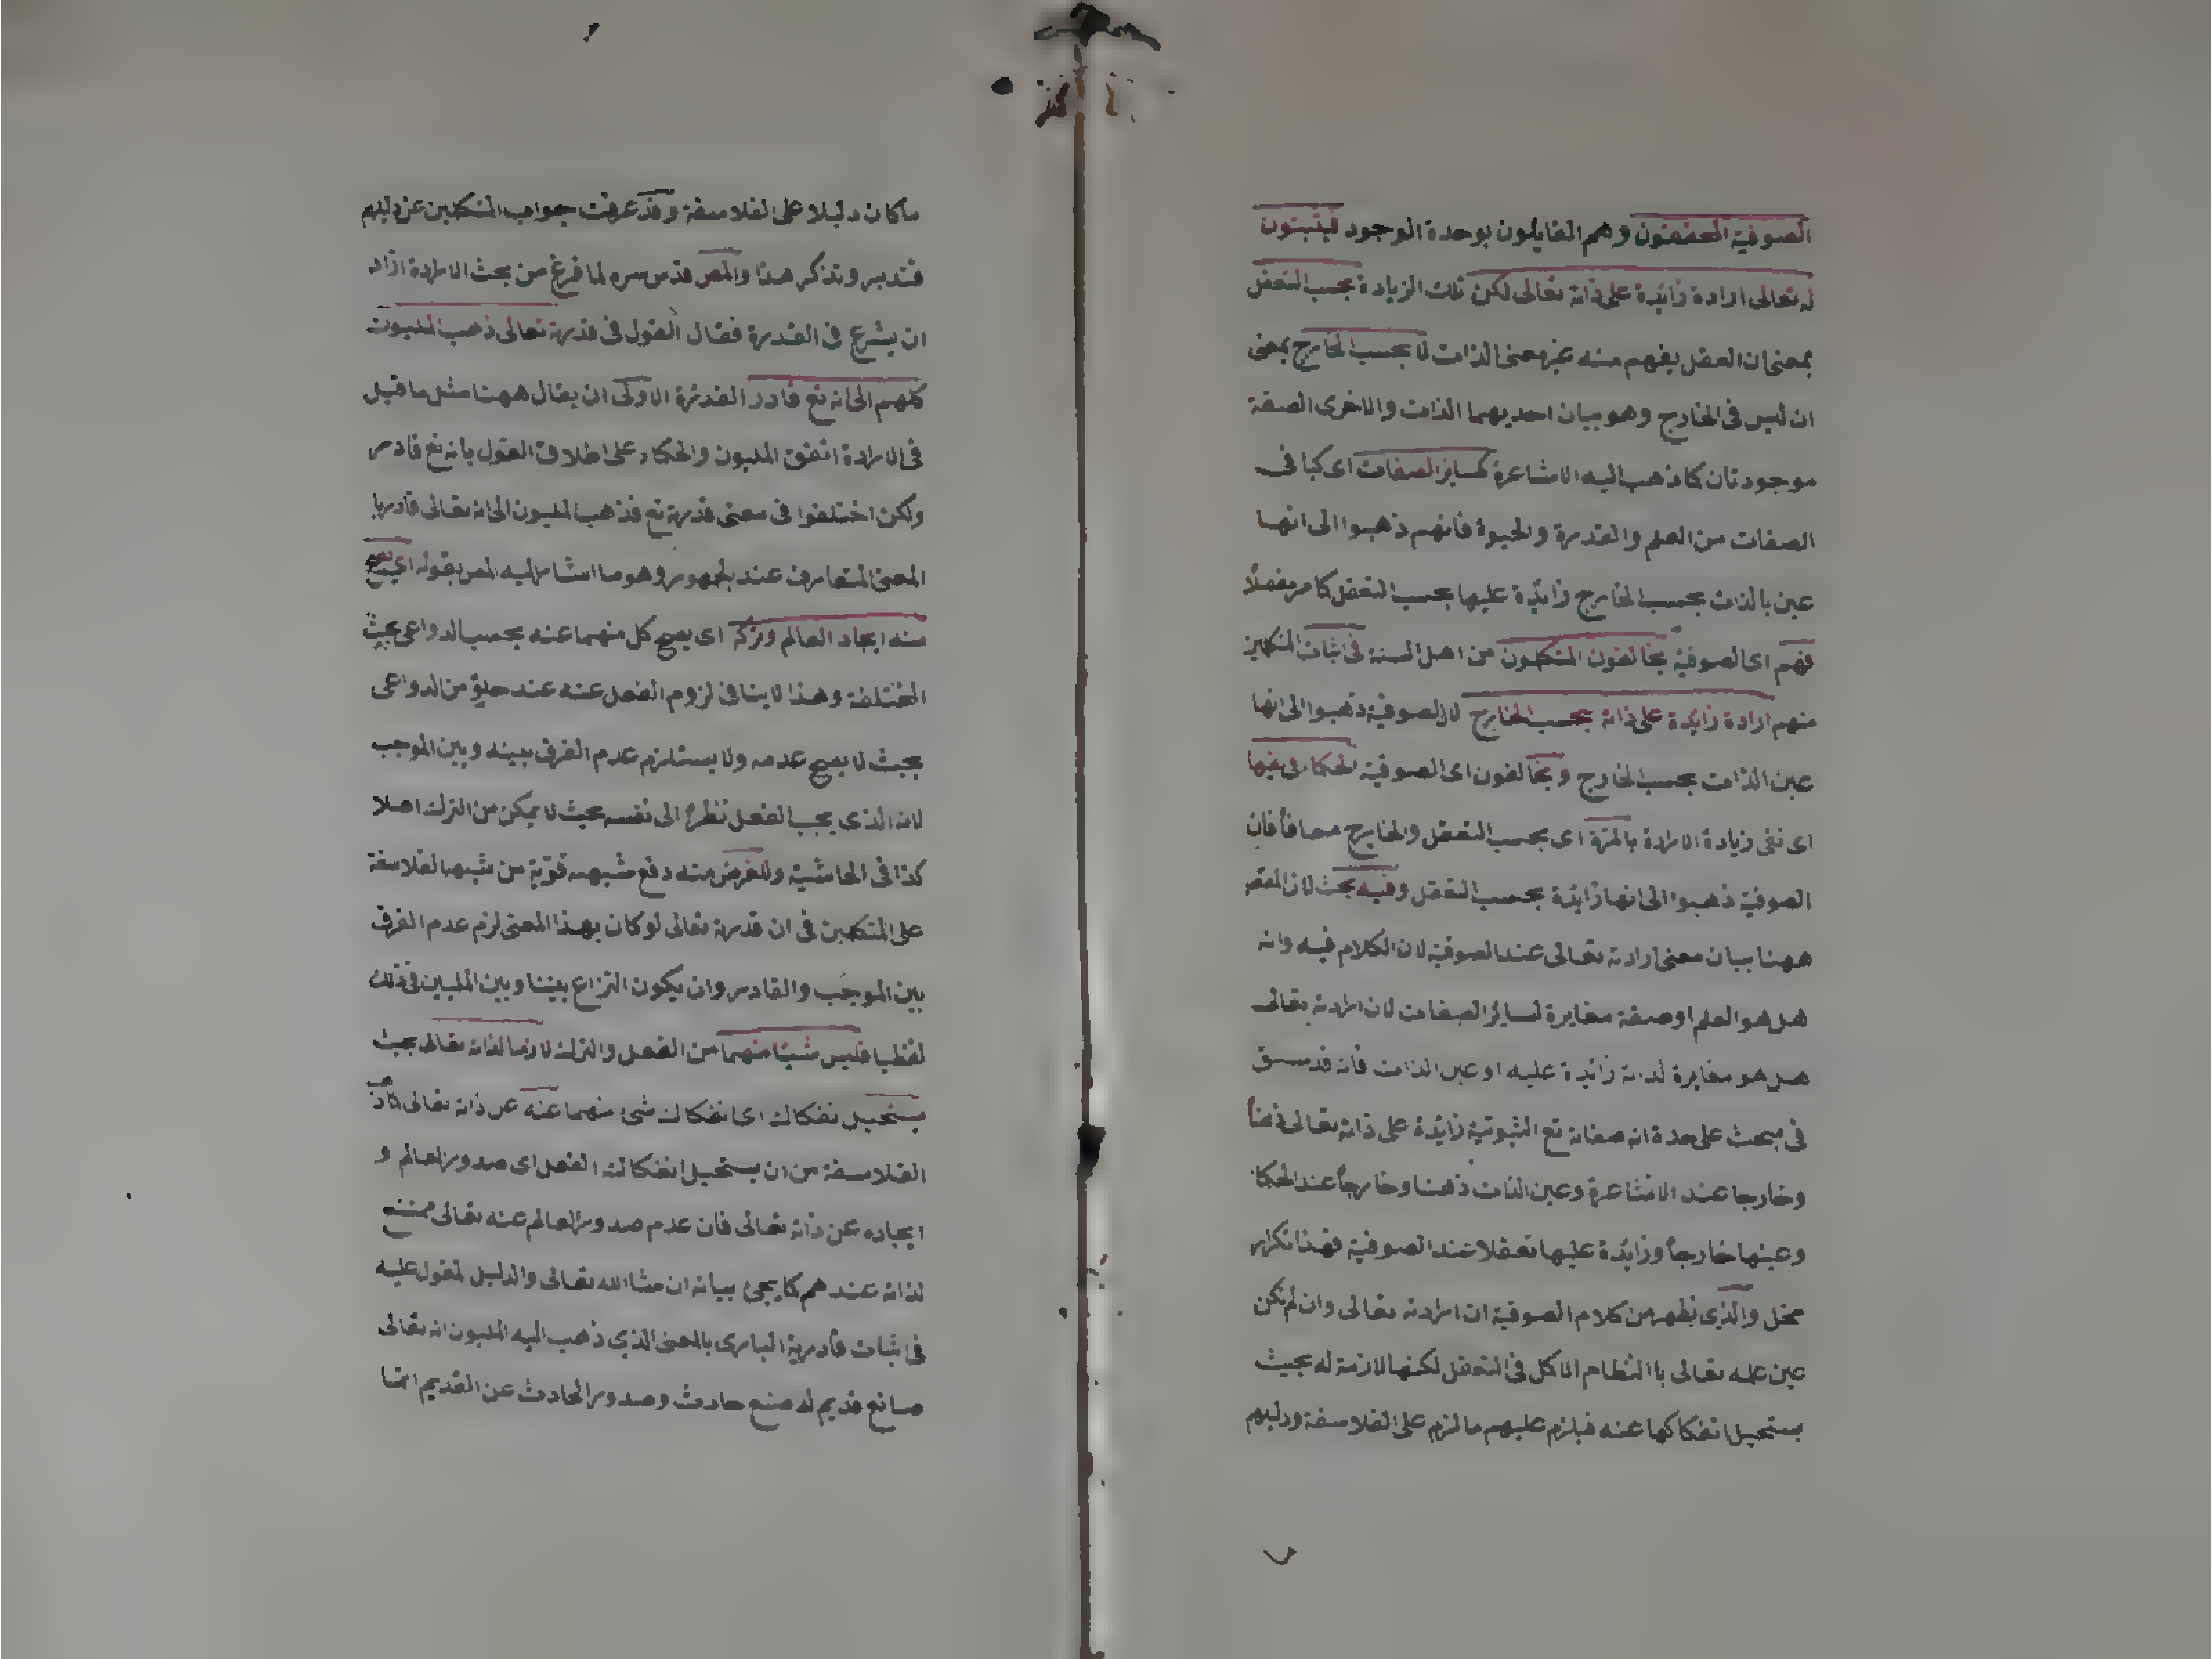 الصوفية المحققون وهم القايلون بوحدة الوجود فيثبتون
له تعالى ارادة زايدة على ذاته تعالى لكن تلك الزيادة بحسب التعقل
بمعنى ان العقل يفهم منه غير معنى الذات لا بحسب الخارج بمعنى
ان ليس فى الخارج وهو بيان احديهما الذات والاخرى الصفة
موجودتان كما ذهب اليه الاشاعرة كساير الصفات اى كما فى
الصفات من العلم والقدرة والحيوة فانهم ذهبوا الى انها
عين بالذات بحسب الخارج زائدة عليها بحسب التعقل كما مر مفصلا
فهم اى الصوفية يخالفون المتكلمون من اهل السنة فى اثبات المتكلمين
منهم ارادة زايدة على ذاته بحسب الخارج لان الصوفية ذهبوا الى انها
عين الذات بحسب الخارج ويخالفون اى الصوفية الحكما فى نفيها
اى نفى زيادة الارادة بالمرة اى بحسب التعقل والخارج معا فأن
الصوفية ذهبوا الى انها زايدة بحسب التعقل وفيه بحث لان المقصد
ههنا بيان معنى ارادته تعالى عند الصوفية لان الكلام فيه وانه
هل هو العلم او صفة مغايرة لسائر الصفات لان ارادته تعالى
هل هو مغايرة لذاته زائدة عليه او عين الذات فأنه قد سبق
فى مبحث على حدة انه صفاته تع الثبوتية زائدة على ذاته تعالى ذهنا
وخارجا عند الاشاعرة وعين الذات ذهنا وخارجا عند الحكما
وعينها خارجا وزائدة عليها تعقلا عند الصوفية فهذا تكرار
مخل والذى يظهر من كلام الصوفية ان ارادته تعالى وان لم تكن
عين علمه تعالى باالنظام الاكمل فى التعقل لكنها لازمة له بحيث
يستحيل انفكاكها عنه فيلزم عليهم ما لزم على الفلاسفة ودليلهم
ما كان دليلا على الفلاسفة وقد عرفت جواب المتكلمين عن دليلهم
فتدبر وتذكر هذا والمص قدس سره لما فرغ من بحث الارادة اراد
ان يشرع فى القدرة فقال القول فى قدرته تعالى ذهب المليون
كلهم الى انه تع قادر القدرة الاولى ان يقال ههنا مثل ما قيل
فى الارادة اتفق المليون والحكماء على اطلاق القول بانه تع قادر
ولكن اختلفوا فى معنى قدرته تع فذهب المليون الى انه تعالى قادر با
المعنى المتعارف عند الجمهور وهو ما اشار اليه المص بقوله اى يصح
منه ايجاد العالم وتركه اى يصح كل منهما عنه بحسب الدواعى بحيث
المختلفة وهذا لا ينافى لزوم الفعل عنه عند خلو من الدواعى
بحيث لا يصح عدمه ولا يستلزم عدم الفرق بينه وبين الموجب
لانه الذى يجب الفعل نظرا الى نفسه بحيث لا يمكن من الترك اصلا
كذا فى الحاشية والغرض منه دفع شبهة قوية من شبه الفلاسفة
على المتكلمين فى ان قدرته تعالى لو كان بهذا المعنى لزم عدم الفرق
بين الموجب والقادر وان يكون النزاع بيننا وبين المليين فى ذلك
لفظيا فليس شيئا منهما من الفعل والترك لازما لذاته تعالى بحيث
يستحيل نفكاك اى انفكاك شئ منهما عنه عن ذاته تعالى كما ذهب
الفلاسفة من ان يستحيل انفكاك الفعل اى صدور العالم و
ايجاده عن ذاته تعالى فان عدم صدور العالم عنه تعالى ممتنع
لذاته عندهم كما يجئ بيانه ان شا الله تعالى والدليل المقول عليه
فى اثبات قادرية البارى بالمعنى الذى ذهب اليه المليون انه تعالى
صانع قديم له صنع حادث وصدور الحادث عن القديم انما